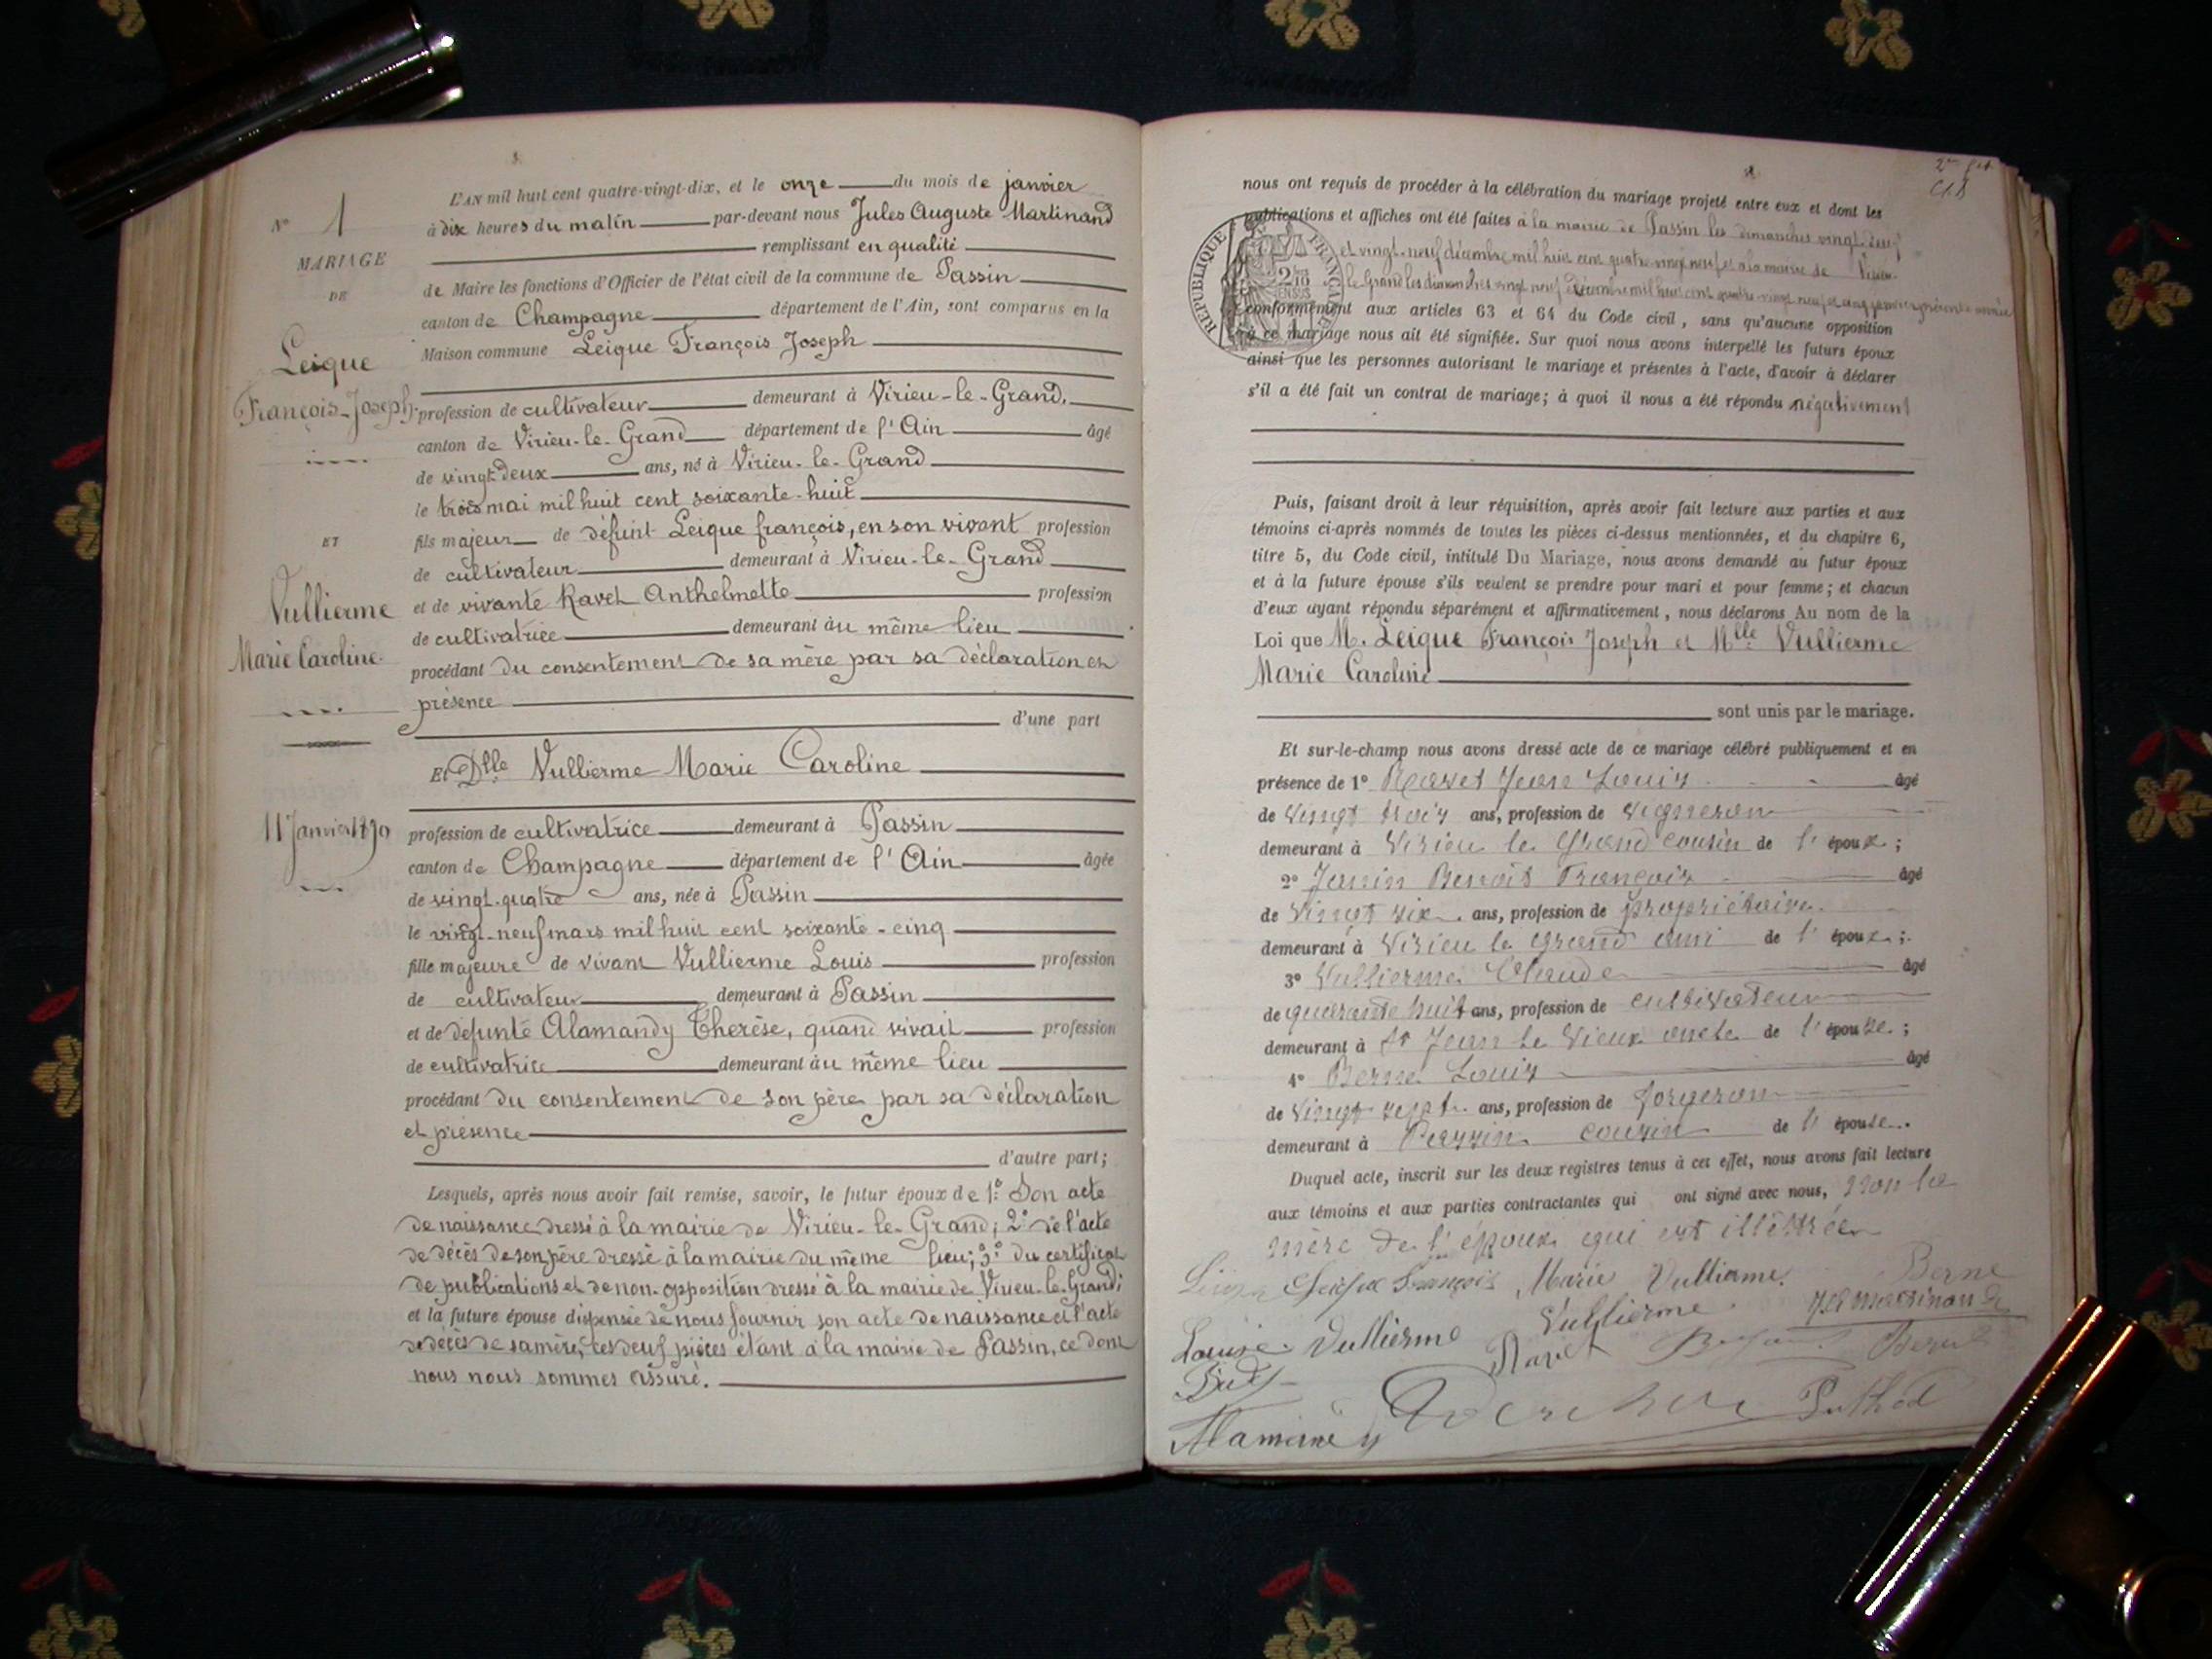 L'AN mil huit cent quatre-vingt-dix, et le onze du mois de janvier
à dix heures du matin par-devant nous Jules Auguste Martinand
remplissant en qualité
de Maire les fonctions d'Officier de l'état civil de la commune de Passin
canton de Champagne département de l'Ain, sont comparus en la
Maison commune Leique François Joseph
profession de cultivateur demeurant à Virieu-le-Grand,
canton de Virieu-le-Grand département de l'Ain âgé
de vingt deux ans, né à Virieu-le-Grand
le trois mai mil huit cent soixante-huit
fils majeur de défunt Leique françois, en son vivant profession
de cultivateur demeurant à Virieu-le-Grand
et de vivante Ravet Anthelmette profession
de cultivatrice demeurant au même lieu
procédant du consentement de sa mère par sa déclaration et
présence
d'une part
Et Dlle Vullierme Marie Caroline
profession de cultivatrice demeurant à Passin
canton de Champagne département de l'Ain âgée
de vingt-quatre ans, née à Passin
le vingt-neuf mars mil huit cent soixante-cinq
fille majeure de vivant Vullierme Louis profession
de cultivateur demeurant à Passin
et de défunte Alamandy Therèse, quand vivait profession
de cultivatrice demeurant au même lieu
procédant du consentement de son père par sa déclaration
et présence
d'autre part;
Lesquels, après nous avoir fait remise, savoir, le futur époux de 1º Son acte
de naissance dressé à la mairie de Virieu-le-Grand; 2º de l'acte
de décès de son père dressé à la mairie du même lieu; 3º du certificat
de publications et de non-opposition dressé à la mairie de Virieu-le-Grand;
et la future épouse dispensée de nous fournir son acte de naissance et l'acte
de décès de sa mère, ces deux pièces étant à la mairie de Passin, ce dont
nous nous sommes assuré.
Nº 1
MARIAGE
DE
Leique
François-Joseph
ET
Vullierme
Marie Caroline
11 Janvier 1890
2me
nous ont requis de procéder à la célébration du mariage projeté entre eux et dont les
publications et affiches ont été faites à la mairie de Passin les dimanches vingt-deux
et vingt-neuf décembre mil huit cent quatre-vingt neuf et à la mairie de Virieu-
le-Grand les dimanches vingt neuf décembre mil huit cent quatre-vingt neuf et cinq janvier présente année
RÉPUBLIQUE FRANÇAISE
conformément aux articles 63 et 64 du Code civil, sans qu'aucune opposition
à ce mariage nous ait été signifiée. Sur quoi nous avons interpellé les futurs époux
ainsi que les personnes autorisant le mariage et présentes à l'acte, d'avoir à déclarer
s'il a été fait un contrat de mariage; à quoi il nous a été répondu négativement
Puis, faisant droit à leur réquisition, après avoir fait lecture aux parties et aux
témoins ci-après nommés de toutes les pièces ci-dessus mentionnées, et du chapitre 6,
titre 5, du Code civil, intitulé Du Mariage, nous avons demandé au futur époux
et à la future épouse s'ils veulent se prendre pour mari et pour femme; et chacun
d'eux ayant répondu séparément et affirmativement, nous déclarons Au nom de la
Loi que M. Leique François Joseph et Mlle Vullierme
Marie Caroline
sont unis par le mariage.
Et sur-le-champ nous avons dressé acte de ce mariage célébré publiquement et en
présence de 1º Ravet Jean Louis âgé
de vingt trois ans, profession de vigneron
demeurant à Virieu le Grand cousin de l'époux;
2º Janin Benoît François âgé
de vingt six ans, profession de propriétaire
demeurant à Virieu le Grand ami de l'époux;
3º Vullierme Claude âgé
de quarante huit ans, profession de cultivateur
demeurant à St Jean le Vieux oncle de l'épouse;
4º Berne Louis âgé
de vingt sept ans, profession de forgeron
demeurant à Passin cousin de l'épouse.
Duquel acte, inscrit sur les deux registres tenus à cet effet, nous avons fait lecture
aux témoins et aux parties contractantes qui ont signé avec nous, non la
mère de l'époux qui est illettrée
François Marie Vullierme. Berne
Louise Vullierme Vullierme Martinand
Ravet
Alamandy